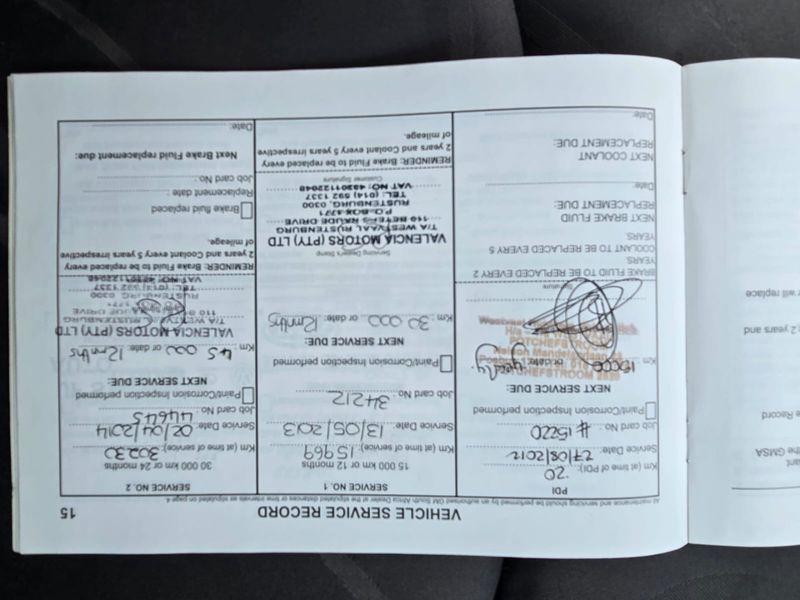 VEHICLE SERVICE RECORD
15
All maintenance and servicing should be performed by an authorised GM South Africa Dealer at the stipulated distances or time intervals as stipulated on page 4.
PDI
Km (at time of PDI): 20
Service Date: 27/08/2012
Job card No.: #15220
Paint/Corrosion Inspection performed
NEXT SERVICE DUE:
Km 15000 or date: yearly
POTCHEFSTROOM
Signature
BRAKE FLUID TO BE REPLACED EVERY 2
YEARS
COOLANT TO BE REPLACED EVERY 5
YEARS.
NEXT BRAKE FLUID
REPLACEMENT DUE:
Date:
NEXT COOLANT
REPLACEMENT DUE:
Date:
SERVICE NO. 1
15 000 km or 12 months
Km (at time of service): 15969
Service Date: 13/05/2013
Job card No.: 34212
Paint/Corrosion Inspection performed
NEXT SERVICE DUE:
Km 30 000 or date: 12mnths
Servicing Dealer's Stamp
VALENCIA MOTORS (PTY) LTD
T/A WESTVAAL RUSTENBURG
110 BEYERS NAUDE DRIVE
P.O. BOX 1771
RUSTENBURG, 0300
TEL: (014) 592 1337
VAT NO: 48301122048
Customer Signature
REMINDER: Brake Fluid to be replaced every
2 years and Coolant every 5 years irrespective
of mileage.
SERVICE NO. 2
30 000 km or 24 months
Km (at time of service): 30230
Service Date: 02/04/2014
Job card No.: 44645
Paint/Corrosion Inspection performed
NEXT SERVICE DUE:
Km 45 000 or date: 12mnths
VALENCIA MOTORS (PTY) LTD
T/A WESTVAAL RUSTENBURG
RUSTENBURG, 0300
TEL: (014) 592 1337
REMINDER: Brake Fluid to be replaced every
2 years and Coolant every 5 years irrespective
of mileage.
Brake fluid replaced
Replacement date:
Job card No.:
Next Brake Fluid replacement due:
Date:
r will replace
d 2 years and
e Record
the GMSA